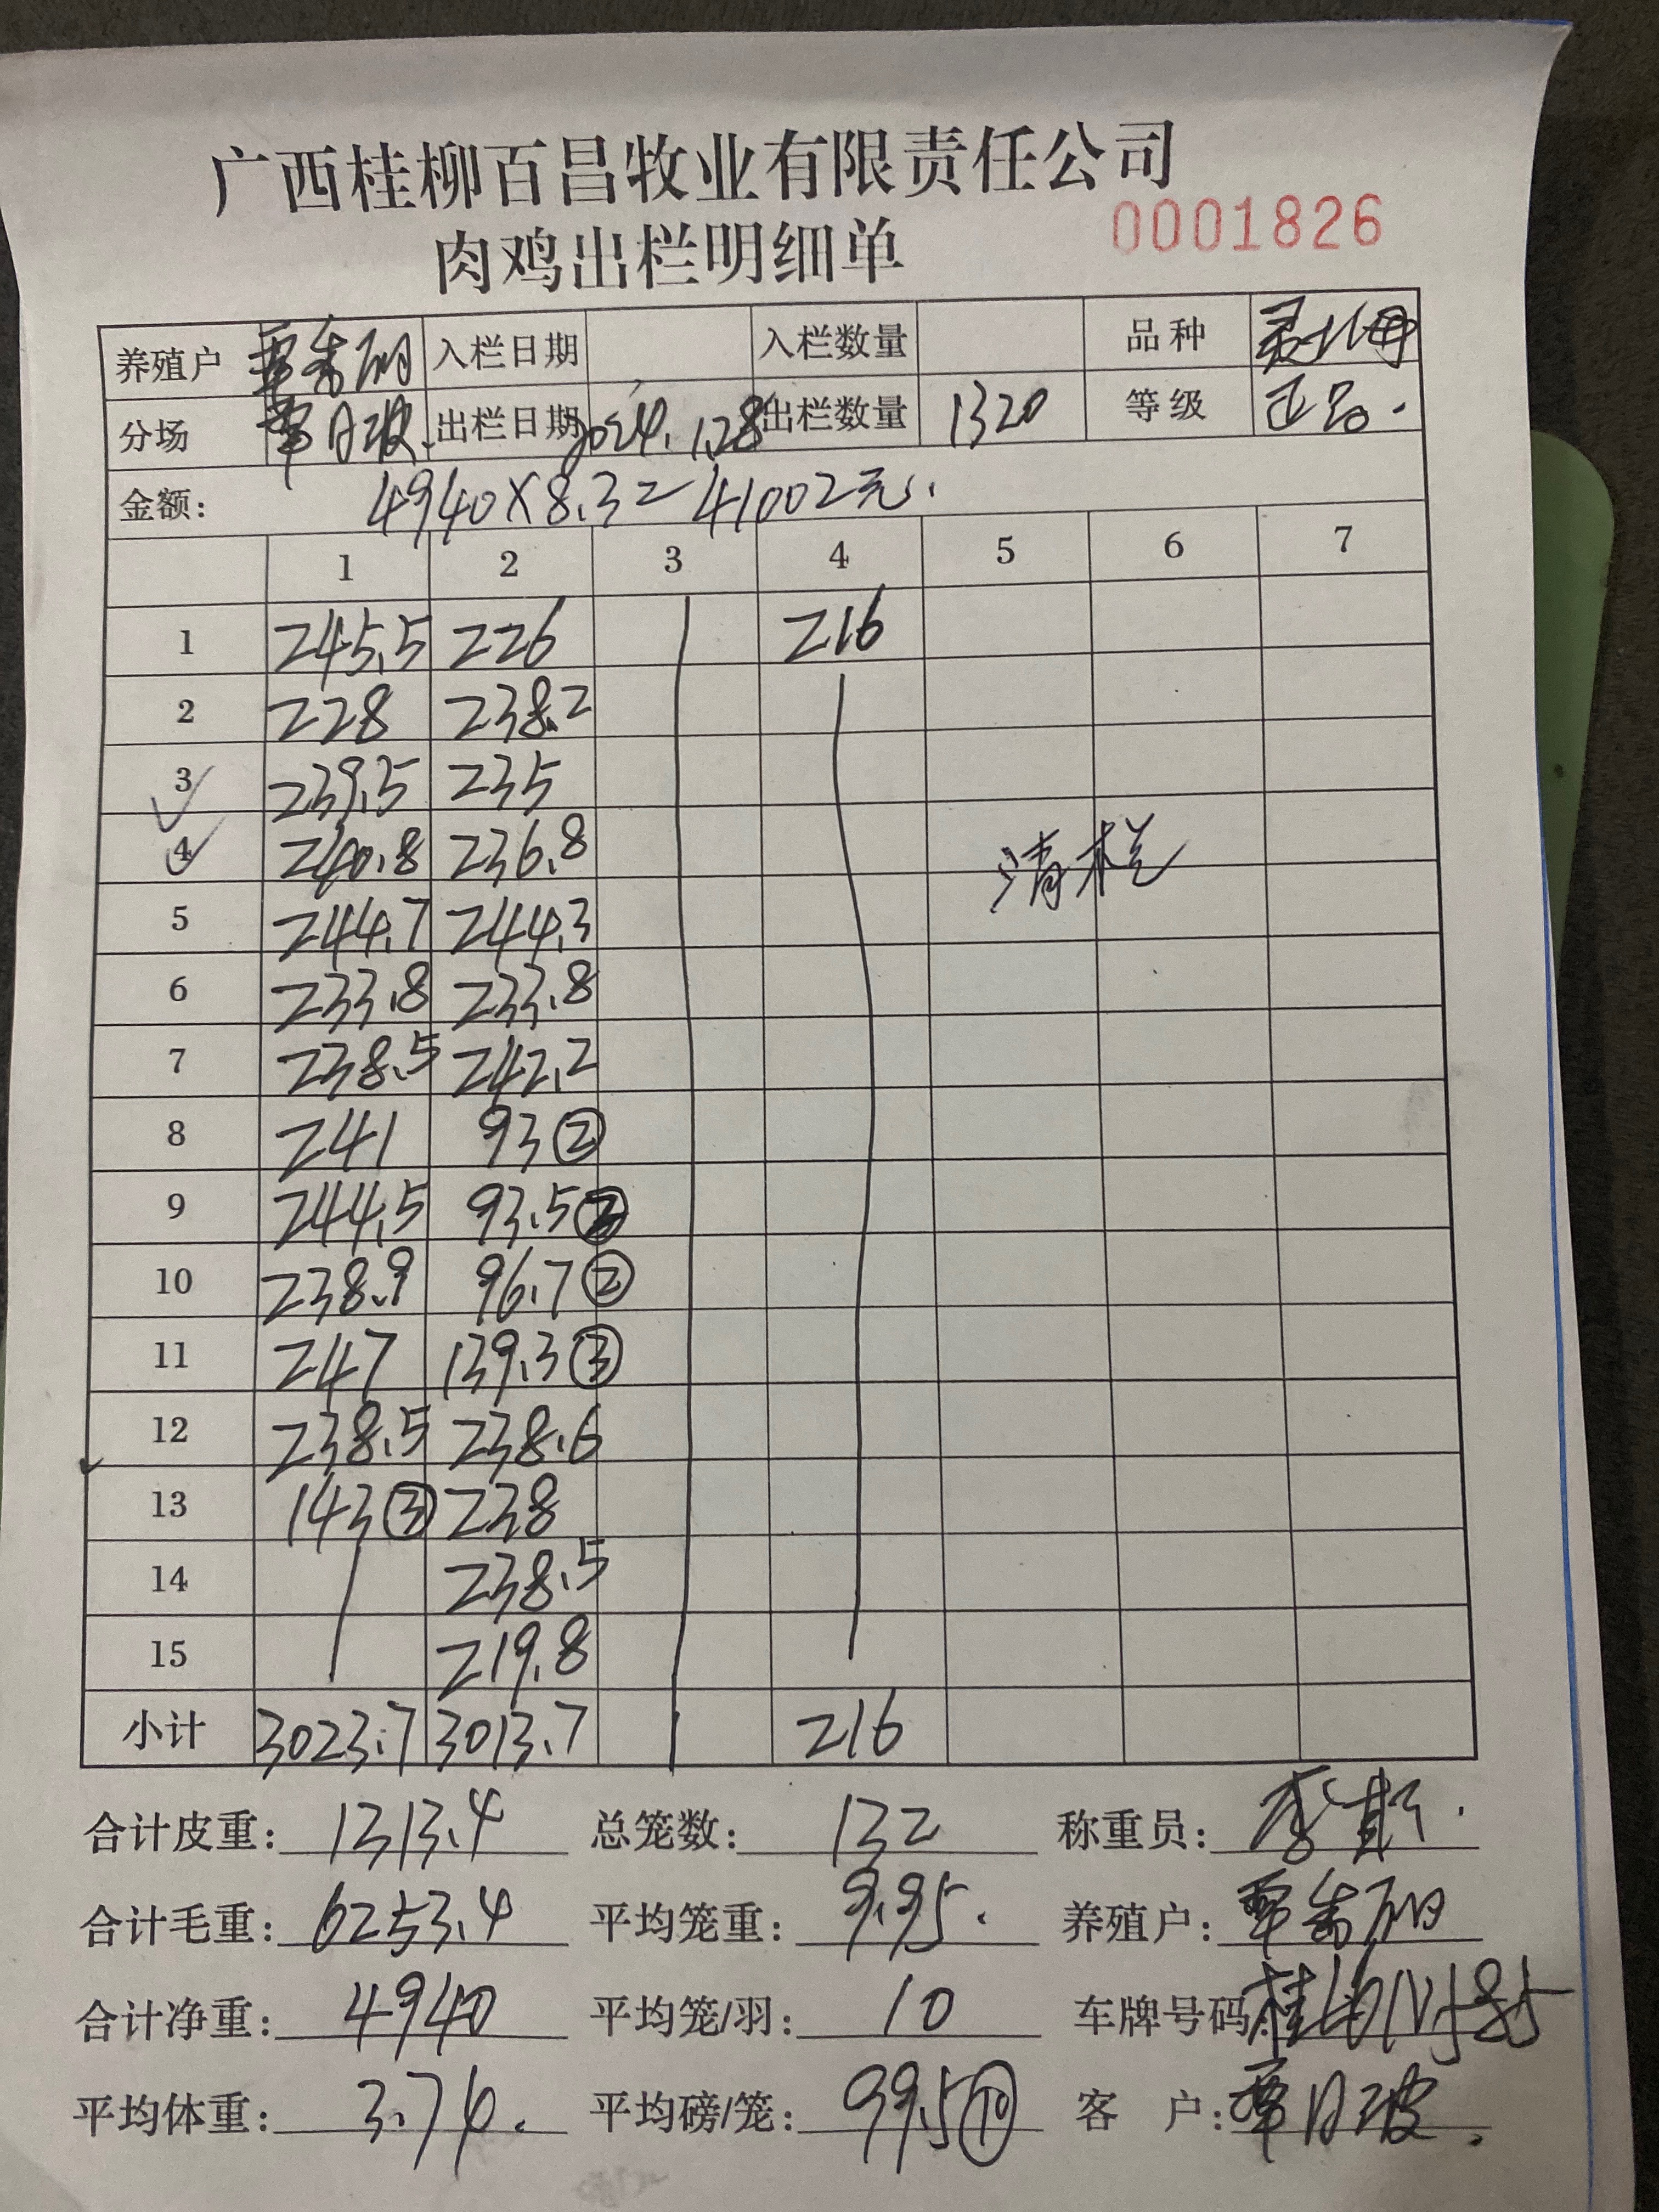 广西桂柳百昌牧业有限责任公司
肉鸡出栏明细单 0001826
养殖户 入栏日期 入栏数量 品种
分场 覃日波. 出栏日期 2024.1.28 出栏数量 1320 等级 正品.
金额: 4940×8.3=41002元.
1 2 3 4 5 6 7
1 245.5 226 216
2 228 238.2
3 239.5 235
4 240.8 236.8 清栏
5 244.7 244.3
6 233.8 233.8
7 238.5 242.2
8 241 93②
9 244.5 93.5②
10 238.9 96.7②
11 247 139.3③
12 238.5 238.6
13 143③ 238
14 238.5
15 219.8
小计 3023.7 3013.7 216
合计皮重: 1313.4 总笼数: 132 称重员:
合计毛重: 6253.4 平均笼重: 9.95. 养殖户:
合计净重: 4940 平均笼/羽: 10 车牌号码:
平均体重: 3.74. 平均磅/笼: 99.5⑩ 客 户: 覃日波.